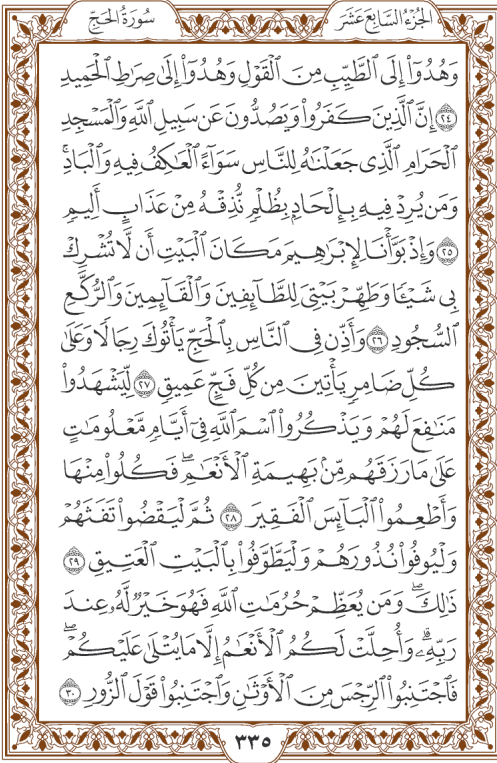 الجُزْءُ السَّابِعَ عَشَرَ
سُورَةُ الحَجِّ
وَهُدُوٓاْ إِلَى ٱلطَّيِّبِ مِنَ ٱلْقَوْلِ وَهُدُوٓاْ إِلَىٰ صِرَٰطِ ٱلْحَمِيدِ
٢٤ إِنَّ ٱلَّذِينَ كَفَرُواْ وَيَصُدُّونَ عَن سَبِيلِ ٱللَّهِ وَٱلْمَسْجِدِ
ٱلْحَرَامِ ٱلَّذِى جَعَلْنَٰهُ لِلنَّاسِ سَوَآءً ٱلْعَٰكِفُ فِيهِ وَٱلْبَادِۚ
وَمَن يُرِدْ فِيهِ بِإِلْحَادِۭ بِظُلْمٍ نُّذِقْهُ مِنْ عَذَابٍ أَلِيمٍ
٢٥ وَإِذْ بَوَّأْنَا لِإِبْرَٰهِيمَ مَكَانَ ٱلْبَيْتِ أَن لَّا تُشْرِكْ
بِى شَيْـًٔا وَطَهِّرْ بَيْتِىَ لِلطَّآئِفِينَ وَٱلْقَآئِمِينَ وَٱلرُّكَّعِ
ٱلسُّجُودِ ٢٦ وَأَذِّن فِى ٱلنَّاسِ بِٱلْحَجِّ يَأْتُوكَ رِجَالًا وَعَلَىٰ
كُلِّ ضَامِرٍ يَأْتِينَ مِن كُلِّ فَجٍّ عَمِيقٍ ٢٧ لِّيَشْهَدُواْ
مَنَٰفِعَ لَهُمْ وَيَذْكُرُواْ ٱسْمَ ٱللَّهِ فِىٓ أَيَّامٍ مَّعْلُومَٰتٍ
عَلَىٰ مَا رَزَقَهُم مِّنۢ بَهِيمَةِ ٱلْأَنْعَٰمِۖ فَكُلُواْ مِنْهَا
وَأَطْعِمُواْ ٱلْبَآئِسَ ٱلْفَقِيرَ ٢٨ ثُمَّ لْيَقْضُواْ تَفَثَهُمْ
وَلْيُوفُواْ نُذُورَهُمْ وَلْيَطَّوَّفُواْ بِٱلْبَيْتِ ٱلْعَتِيقِ ٢٩
ذَٰلِكَۖ وَمَن يُعَظِّمْ حُرُمَٰتِ ٱللَّهِ فَهُوَ خَيْرٌ لَّهُۥ عِندَ
رَبِّهِۦۗ وَأُحِلَّتْ لَكُمُ ٱلْأَنْعَٰمُ إِلَّا مَا يُتْلَىٰ عَلَيْكُمْۖ
فَٱجْتَنِبُواْ ٱلرِّجْسَ مِنَ ٱلْأَوْثَٰنِ وَٱجْتَنِبُواْ قَوْلَ ٱلزُّورِ ٣٠
٣٣٥